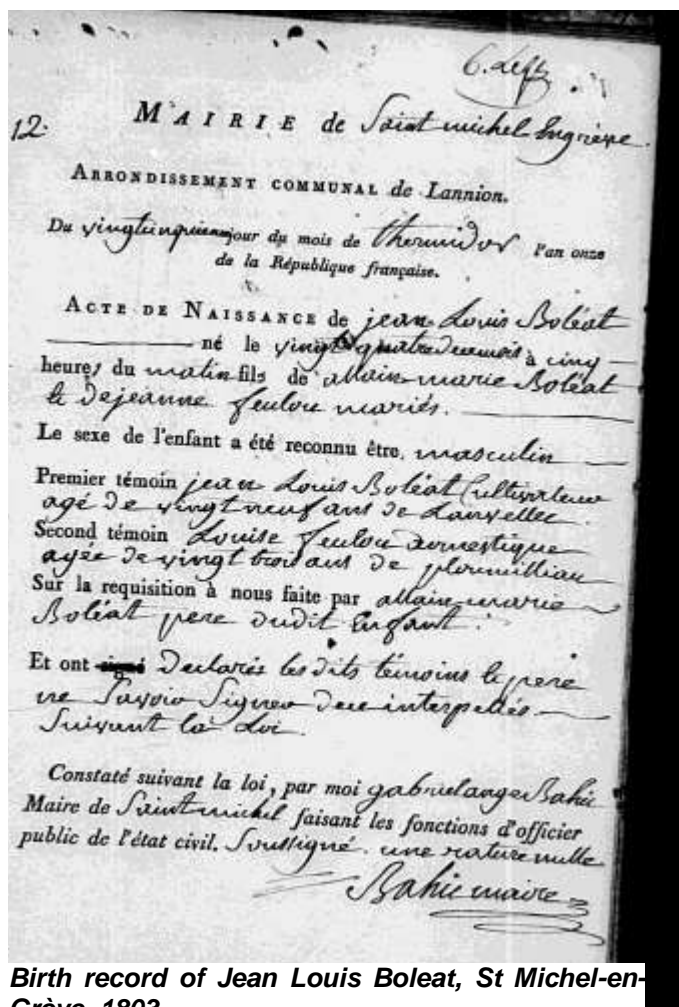 12.
MAIRIE de Saint michel Engrève.
ARRONDISSEMENT COMMUNAL de Lannion.
Du jour du mois de thermidor l'an onze
de la République française.
ACTE DE NAISSANCE de jean Louis Boléat
né le vingt quatre à cinq
heures du matin fils de allain marie Boléat
& De jeanne feulou mariés.
Le sexe de l'enfant a été reconnu être, masculin
Premier témoin jean Louis Boléat Cultivateur
agé De vingt neuf ans de Lanvellec.
Second témoin Louise feulou Domestique
agée De vingt trois ans De ploumilliau
Sur la requisition à nous faite par allain marie
Boléat pere dudit Enfant.
Et ont Declarés les dits témoins & pere
ne Savoir Signer De ce interpellés
Suivant la Loi.
Constaté suivant la loi, par moi gabriel ange Bahic
Maire de Saint michel faisant les fonctions d'officier
public de l'état civil. Soussigné. une rature nulle
Bahic maire
Birth record of Jean Louis Boleat, St Michel-en-
Grève, 1803